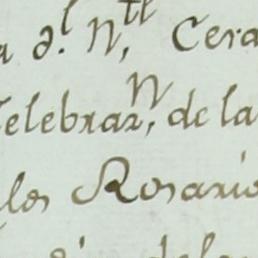 a d.l N.tl Cera
Celebraz.N de la
los Rosario
de la